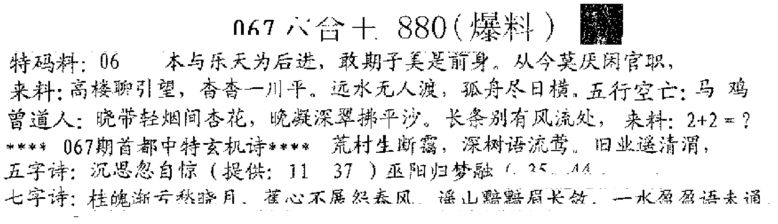 067 六合十 880(爆料)
特码料: 06 本与乐天为后进，敢期子美是前身。从今莫厌闲官职，
来料: 高楼聊引望，杳杳一川平。远水无人渡，孤舟尽日横。五行空亡: 马 鸡
曾道人: 晓带轻烟间杏花，晚凝深翠拂平沙。长条别有风流处， 来料: 2+2=?
**** 067期首都中特玄机诗**** 荒村生断霭，深树语流莺。旧业遥清渭，
五字诗: 沉思忽自惊 (提供: 11 37) 巫阳归梦融 ( 35 44
七字诗: 桂魄渐亏愁晓月，蕉心不展怨春风。遥山黯黯眉长敛，一水盈盈语未通